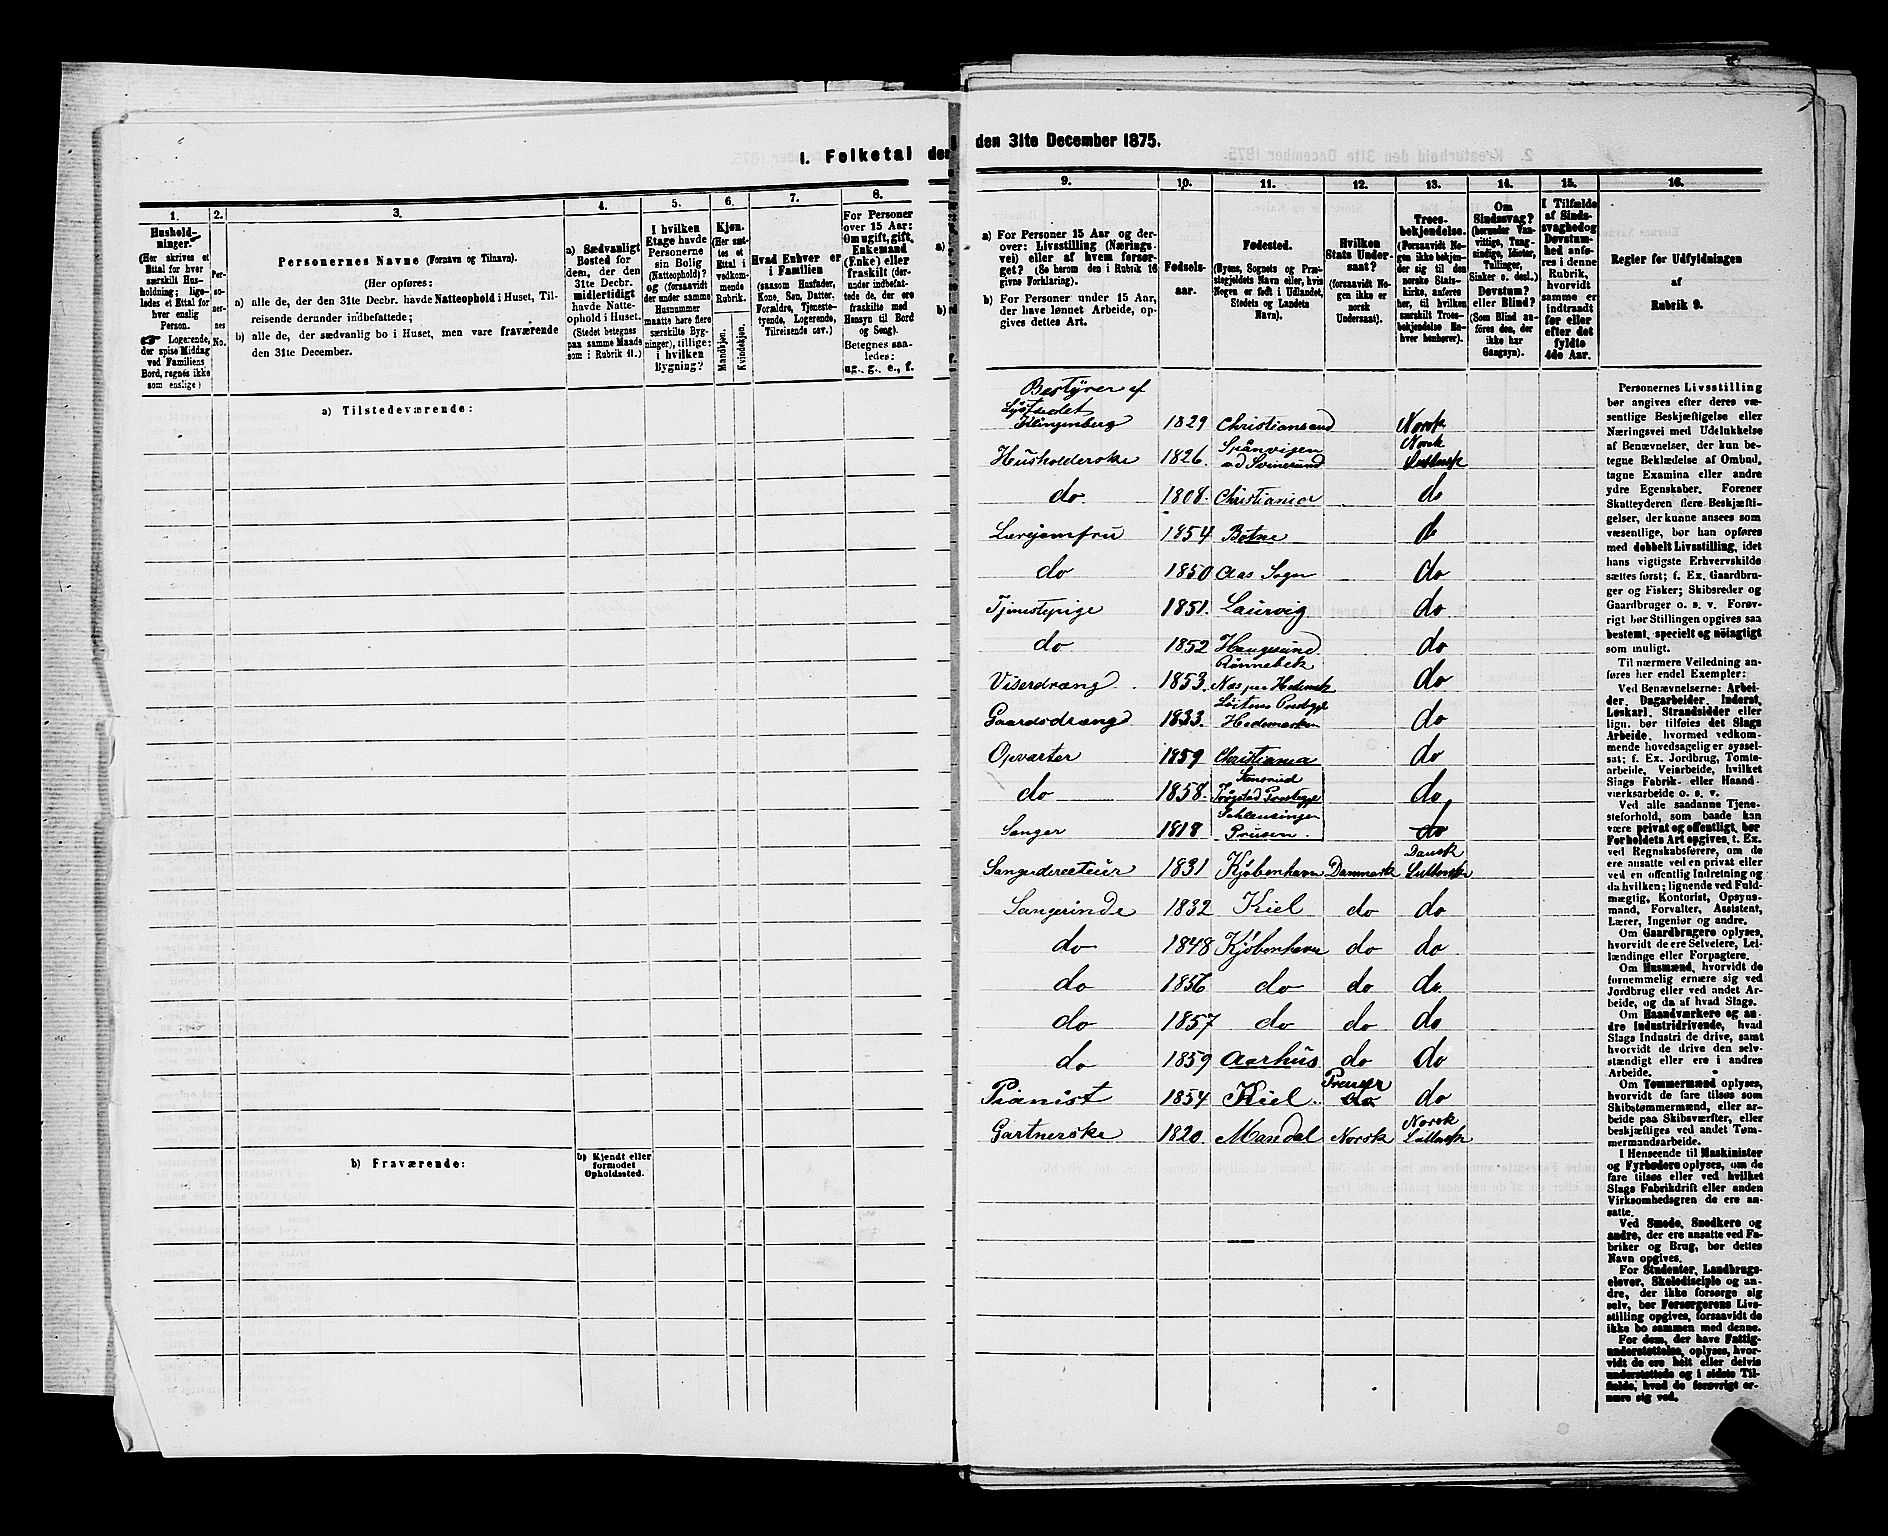 1. Folketal den
den 31te December 1875.
1.
2.
3.
4.
5.
6.
7.
8.
Hushold-
ninger.
(Her skrives et
Ettal for hver
særskilt Hus-
holdning; lige-
ledes et Ettal for
hver enslig
Person.
☞ Logerende,
der spise Middag
ved Familiens
Bord, regnes ikke
som enslige)
Per-
so-
ner-
nes
No.
Personernes Navne (Fornavn og Tilnavn).
(Her opføres:
a) alle de, der den 31te Decbr. havde Natteophold i Huset, Til-
reisende derunder indbefattede;
b) alle de, der sædvanlig bo i Huset, men vare fraværende
den 31te December.
a) Sædvanligt
Bosted for
dem, der den
31te Decbr.
midlertidigt
havde Natte-
ophold i Huset.
(Stedet betegnes
paa samme Maade
som i Rubrik 11.)
I hvilken
Etage havde
Personerne
sin Bolig
(Natteophold)?
og (forsaavidt
der under samme
Husnummer
maatte høre flere
særskilte Byg-
ninger), tillige:
i hvilken
Bygning?
Kjøn.
(Her sæt-
tes et
Ettal i
vedkom-
mende
Rubrik.
Mandkjøn.
Kvindekjøn.
Hvad Enhver er
i Familien
(saasom Husfader,
Kone, Søn, Datter,
Forældre, Tjeneste-
tyende, Logerende,
Tilreisende osv.)
For Personer
over 15 Aar:
Om ugift, gift,
Enkemand
(Enke) eller
fraskilt (der-
under indbefat-
tede de, der ere
fraskilte med
Hensyn til Bord
og Seng).
Betegnes saa-
ledes:
ug., g., e., f.
a) Tilstedeværende:
b) Fraværende:
b) Kjendt eller
formodet
Opholdssted.
9.
10.
11.
12.
13.
14.
15.
16.
a) For Personer 15 Aar og der-
over: Livsstilling (Nærings-
vei) eller af hvem forsør-
get? (Se herom den i Rubrik 16
givne Forklaring).
b) For Personer under 15 Aar,
der have lønnet Arbeide, op-
gives dettes Art.
Fødsels-
aar.
Fødested.
(Byens, Sognets og Præ-
stegjeldets Navn eller, hvis
Nogen er født i Udlandet,
Stedets og Landets
Navn).
Hvilken
Stats Under-
saat?
(forsaavidt No-
gen ikke er
norsk
Undersaat).
Troes-
bekjendelse.
(Forsaavidt No-
gen ikke bekjen-
der sig til den
norske Stats-
kirke, anføres
her, til hvilken
særskilt Troes-
bekjendelse En-
hver henhører).
Om
Sindssvag?
(herunder Van-
vittige, Tung-
sindige, Idioter,
Tullinger,
Sinker o. desl.)
Døvstum?
eller Blind?
(Som Blind an-
føres den, der
ikke har
Gangsyn).
I Tilfælde
af Sinds-
svaghed og
Døvstum-
hed anfø-
res i denne
Rubrik,
hvorvidt
samme er
indtraadt
før eller
efter det
fyldte
4de Aar.
Regler for Udfyldningen
af
Rubrik 9.
Bestyrer af
Lystædet
Klingenberg 1829 Christiansand Norsk
Husholderske 1826. Spånvigen ad Svinesund Norsk Luthersk
do. 1808. Christiania do
Lærejomfru 1854 Botne do
do 1850 Aas Sogn do
Tjenestepige 1851. Laurvig do
do 1852 Haugesund do
Viserdræng 1853. Rønnebek Næs paa Hedemark do
Gaardsdræng 1833. Løitens Prestegj Hedemarken do
Opvarter 1859 Christiania do
do 1858. Stensrud Trøgstad Prestegjl do
Sanger 1818 Schleusingen Prüsen. do
Sangdirecteur 1831 Kjøbenhavn Danmark Dansk Luthersk
Sangerinde 1832 Kiel do do
do 1848 Kjøbenhavn do do
do 1856 do do do
do 1857 do do do
do 1859 Aarhus do do
Pianist 1854 Kiel. Preuser do do
Gartnerske 1820 Mandal Norsk Norsk Luthersk
Personernes Livsstilling
bør angives efter deres væ-
sentlige Beskjæftigelse eller
Næringsvei med Udelukkelse
af Benævnelser, der kun be-
tegne Beklædelse af Ombud,
tagne Examina eller andre
ydre Egenskaber. Forener
Skatteyderen flere Beskjæfti-
gelser, der kunne ansees som
væsentlige, bør han opføres
med dobbelt Livsstilling, idet
hans vigtigste Erhvervskilde
sættes først; f. Ex. Gaardbru-
ger og Fisker; Skibsreder og
Gaardbruger o. s. v. Forøv-
rigt bør Stillingen opgives saa
bestemt, specielt og nöiagtigt
som muligt.
Til nærmere Veiledning an-
føres her endel Exempler:
Ved Benævnelserne: Arbei-
der, Dagarbeider, Inderst,
Løskarl, Strandsidder eller
lign. bør tilføies det Slags
Arbeide, hvormed vedkom-
mende hovedsagelig er syssel-
sat; f. Ex. Jordbrug, Tomte-
arbeide, Veiarbeide, hvilket
Slags Fabrik- eller Haand-
værksarbeide o. s. v.
Ved alle saadanne Tjene-
steforhold, som baade kan
være privat og offentligt, bør
Forholdets Art opgives, t. Ex.
ved Regnskabsførere, om de
ere ansatte ved en privat eller
ved en offentlig Indretning og
da hvilken; lignende ved Fuld-
mægtig, Kontorist, Opsyns-
mand, Forvalter, Assistent,
Lærer, Ingeniør og andre.
Om Gaardbrugere oplyses,
hvorvidt de ere Selveiere, Lei-
lændinge eller Forpagtere.
Om Husmænd, hvorvidt de
fornemmelig ernære sig ved
Jordbrug eller ved andet Ar-
beide, og da af hvad Slags.
Om Haandværkere og an-
dre Industridrivende, hvad
Slags Industri de drive, samt
hvorvidt de drive den selv-
stændigt eller ere i andres
Arbeide.
Om Tømmermænd oplyses,
hvorvidt de fare tilsøs som
Skibstømmermænd, eller ar-
beide paa Skibsværfter, eller
beskjæftiges ved andet Tøm-
mermandsarbeide.
I Henseende til Maskinister
og Fyrbødere oplyses, om de
fare tilsøs eller ved hvilket
Slags Fabrikdrift eller anden
Virksomhedsgren de ere an-
satte.
Ved Smede, Snedkere og
andre, der ere ansatte ved Fa-
briker og Brug, bør dettes
Navn opgives.
For Studenter, Landbrugs-
elever, Skoledisciple og an-
dre, der ikke forsørge sig
selv, bør Forsørgerens Livs-
stilling opgives, forsaavidt de
ikke bo sammen med denne.
For dem, der have Fattig-
understøttelse, oplyses, hvor-
vidt de ere helt eller delvis
understøttede og i sidste Til-
fælde, hvad de forøvrigt er-
nære sig ved.